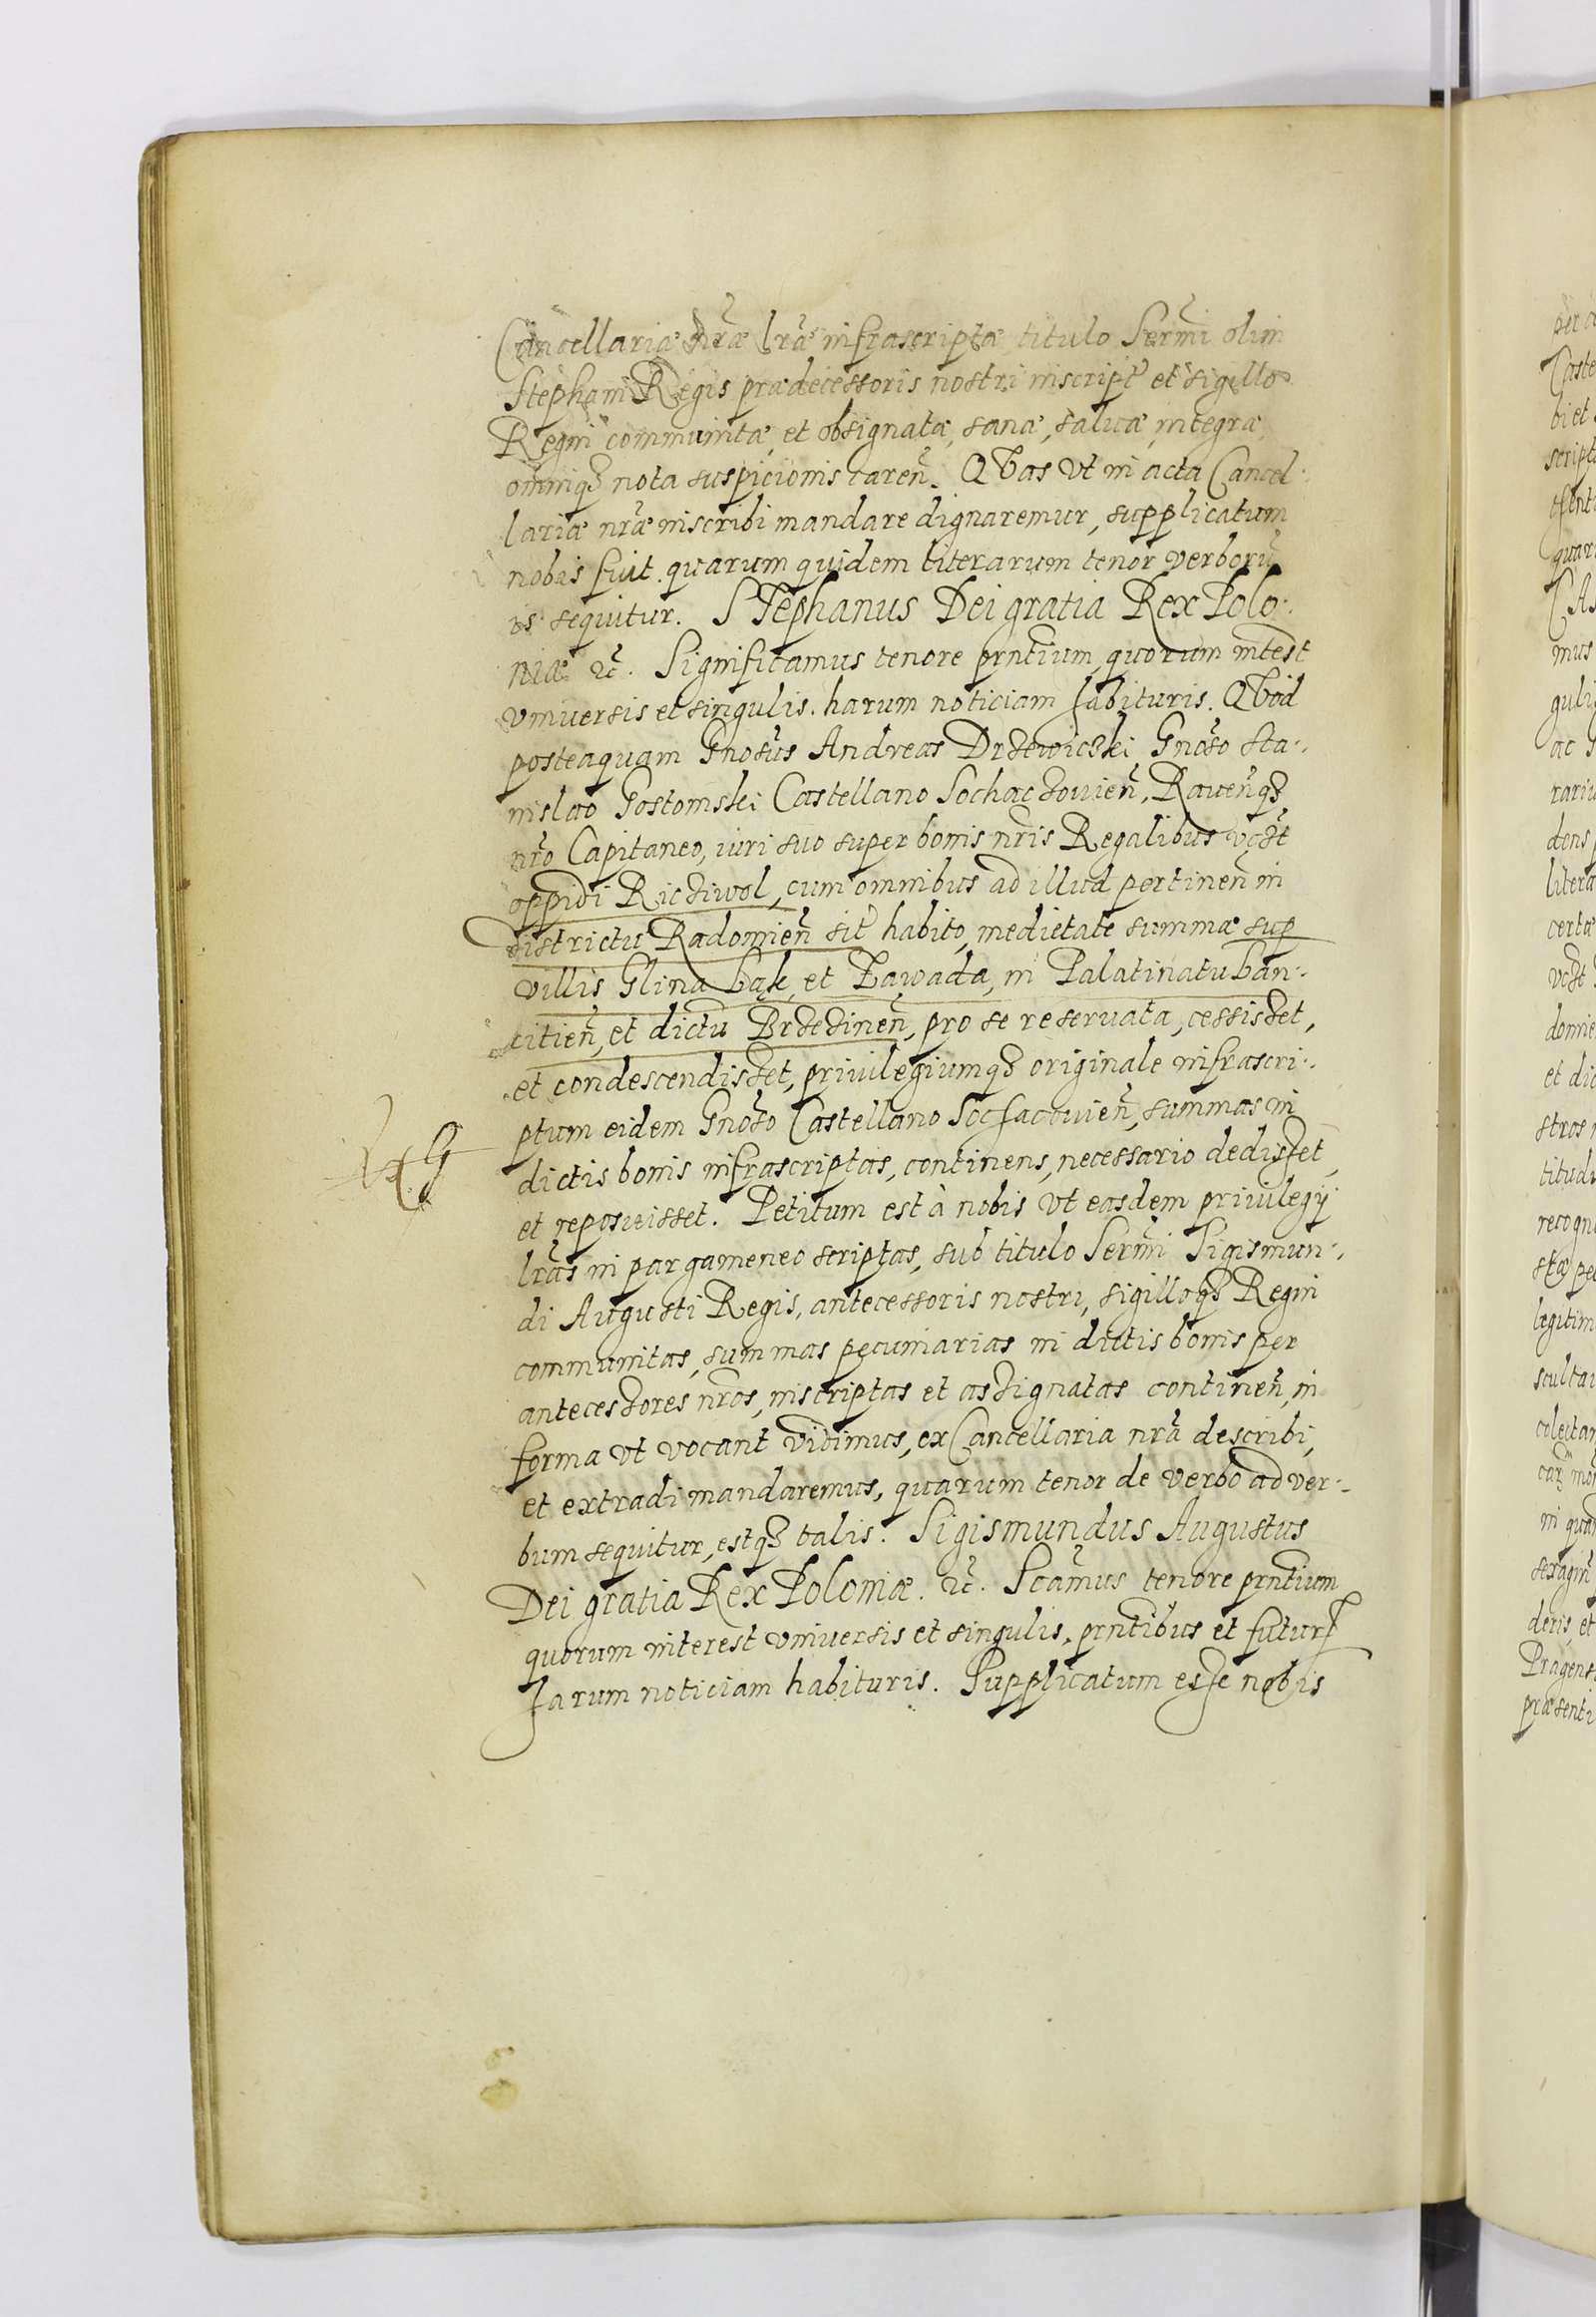 Cancellariæ nr̃æ lr̃æ infrascriptæ titulo Serm̃i olim
Stephani Regis prædecessoris nostri inscript et sigillo
Regni communitæ, et obsignatæ, sanæ, saluæ, integræ,
omniq3 nota suspicionis caren̄. QVas vt in acta Cancel-
lariæ nr̃æ inscribi mandare dignaremur, supplicatum
nobis fuit. quarum quidem literarum tenor verborū
is sequitur. STephanus Dei gratia Rex Polo-
niæ etc̃. Significamus tenore prn̄tium, quorum intest
vniuersis et singulis. harum noticiam habituris. QVod
posteaquam Gnosus Andreas Drzewiczki Gnoso Sta-
nislao Gostomski Castellano Sochaczouien̄, Rawen̄q3
nr̃o Capitaneo, iuri suo super bonis nr̃is Regalibus vczt
oppidi Ricziwol, cum omnibus ad illud pertinen̄ in
districtu Radomien̄ sit habito, medietate summæ sup
villis Glina Łąk, et Zawada, in Palatinatu Lan-
citien̄, et dictu Brzezinen̄, pro se reseruata, cessisset,
et condescendisset, priuilegiumq3 originale infrascri-
ptum eidem Gnoso Castellano Sochaczouien̄, summas in
dictis bonis infrascriptas, continens, necessario dedisset,
et reposuisset. Petitum est à nobis vt easdem priuilegij
lr̃as in pargameneo scriptas, sub titulo Serm̃i Sigismun-
di Augusti Regis, antecessoris nostri, sigilloq3 Regni
communitas, summas pecuniarias in dictis bonis per
antecessores nr̃os, inscriptas et assignatas continen̄, in
forma vt vocant vidimus, ex Cancellaria nr̃a describi,
et extradi mandaremus, quarum tenor de verbo ad ver-
bum sequitur, estq3 talis. Sigismundus Augustus
Dei gratia Rex Poloniæ. etc̃. Scām̃us tenore prn̄tium
quorum interest vniuersis et singulis, prn̄tibus et futur
harum noticiam habituris. Supplicatum esse nobis